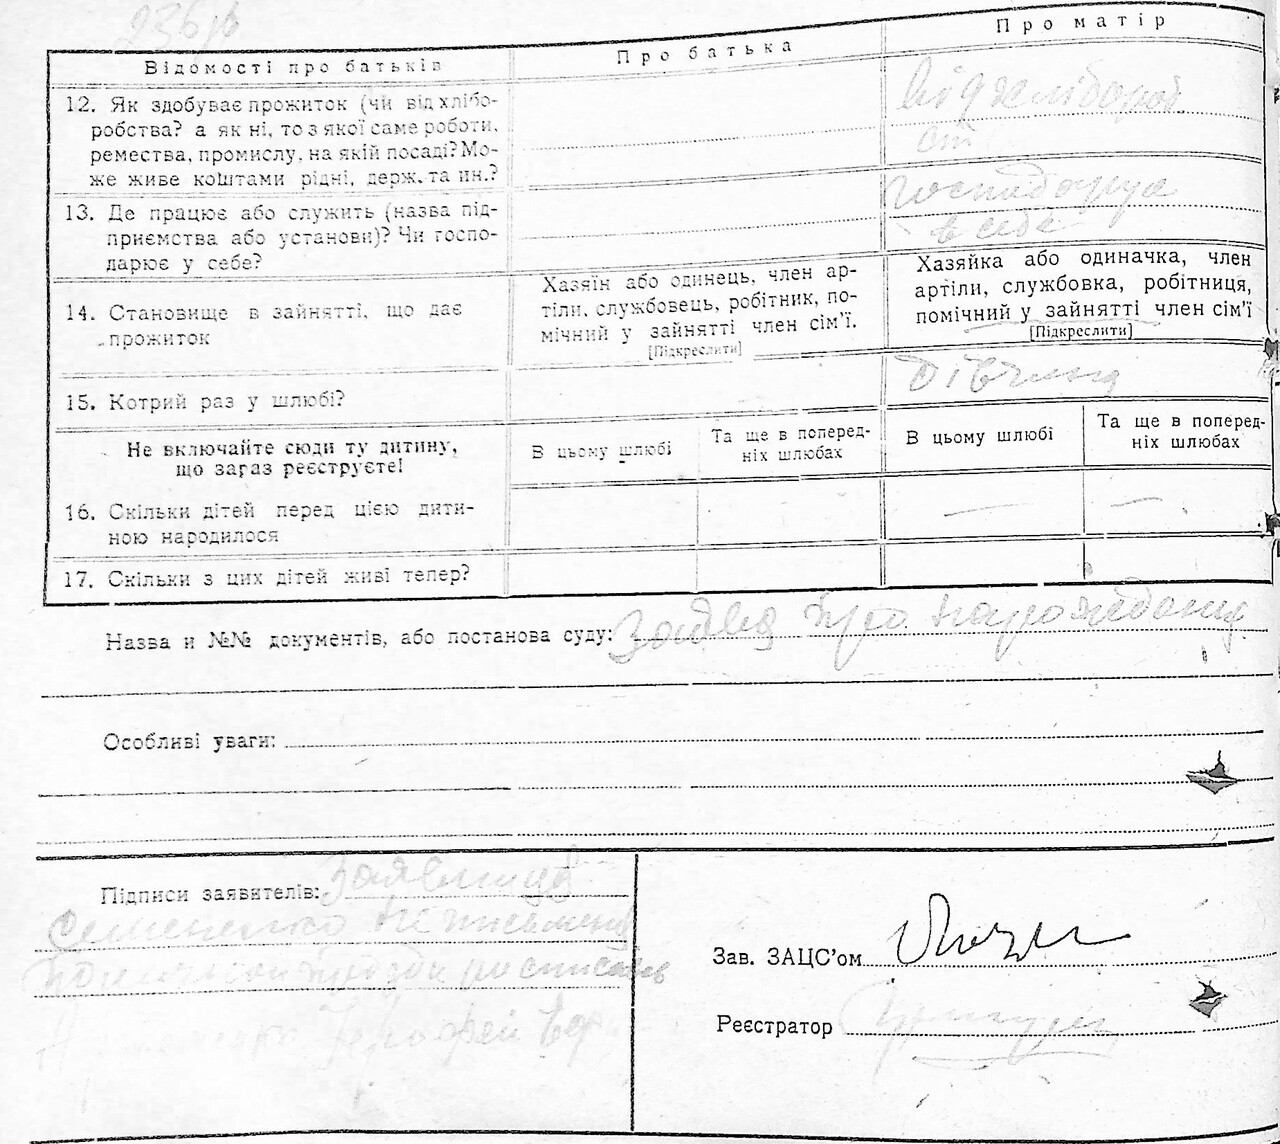 236
Відомості про батьків
Про батька
Про матір
12. Як здобуває прожиток (чи від хлібо-
робства? а як ні, то з якої саме роботи,
ремества, промислу, на якій посаді? Мо-
же живе коштами рідні, держ. та ин.?
від хлібороб
ств
13. Де працює або служить (назва під-
приємства або установи)? Чи госпо-
дарює у себе?
господарує
в себе
14. Становище в зайнятті, що дає
прожиток
Хазяїн або одинець, член ар-
тіли, службовець, робітник, по-
мічний у зайнятті член сім'ї.
[Підкреслити]
Хазяйка або одиначка, член
артіли, службовка, робітниця,
помічний у зайнятті член сім'ї
[Підкреслити]
15. Котрий раз у шлюбі?
дівчина
Не включайте сюди ту дитину,
що зараз реєструєте!
В цьому шлюбі
Та ще в поперед-
ніх шлюбах
В цьому шлюбі
Та ще в поперед-
ніх шлюбах
16. Скільки дітей перед цією дити-
ною народилося
—
—
17. Скільки з цих дітей живі тепер?
Назва и №№ документів, або постанова суду: Заява про
Особливі уваги:
Підписи заявителів:
Семененко
Зав. ЗАЦС'ом
Реєстратор